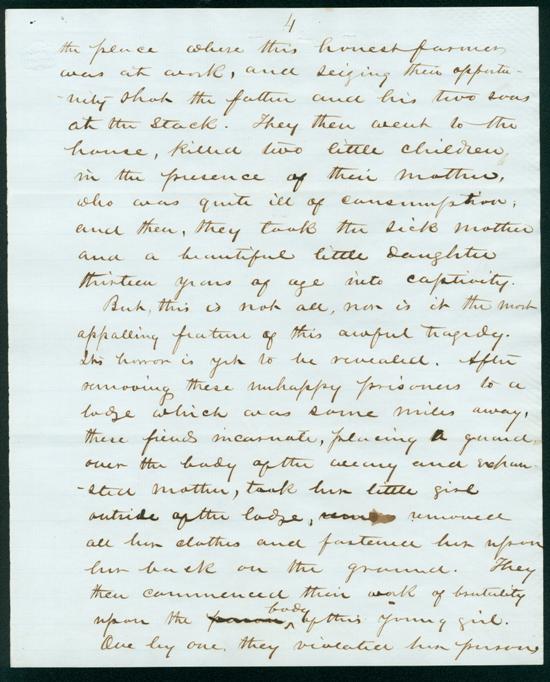 4
the place where this honest farmer
was at work, and seizing their opportu-
-nity shot the father and his two sons
at the stack. They then went to the
house, killed two little children
in the presence of their mother,
who was quite ill of consumption,
and then, they took the sick mother
and a beautiful little daughter
thirteen years of age into captivity.
But, this is not all, nor is it the most
appalling feature of this awful tragedy.
Its horror is yet to be revealed. After
removing these unhappy prisoners to a
lodge which was some miles away,
these fiends incarnate, placing a guard
over the body of the weary and exhau-
-sted mother, took her little girl
outside of the lodge, removed
all her clothes and fastened her upon
her back on the ground. They
then commenced their work of brutality
upon the person body of this young girl.
One by one, they violated her person